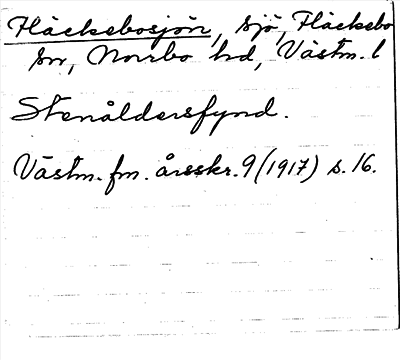 Fläcksbosjön, sjö, Fläckebo
sn, Norrbo hd, Västm. l
Stenåldersfynd.
Västm. fm. årsskr. 9 (1917) s. 16.